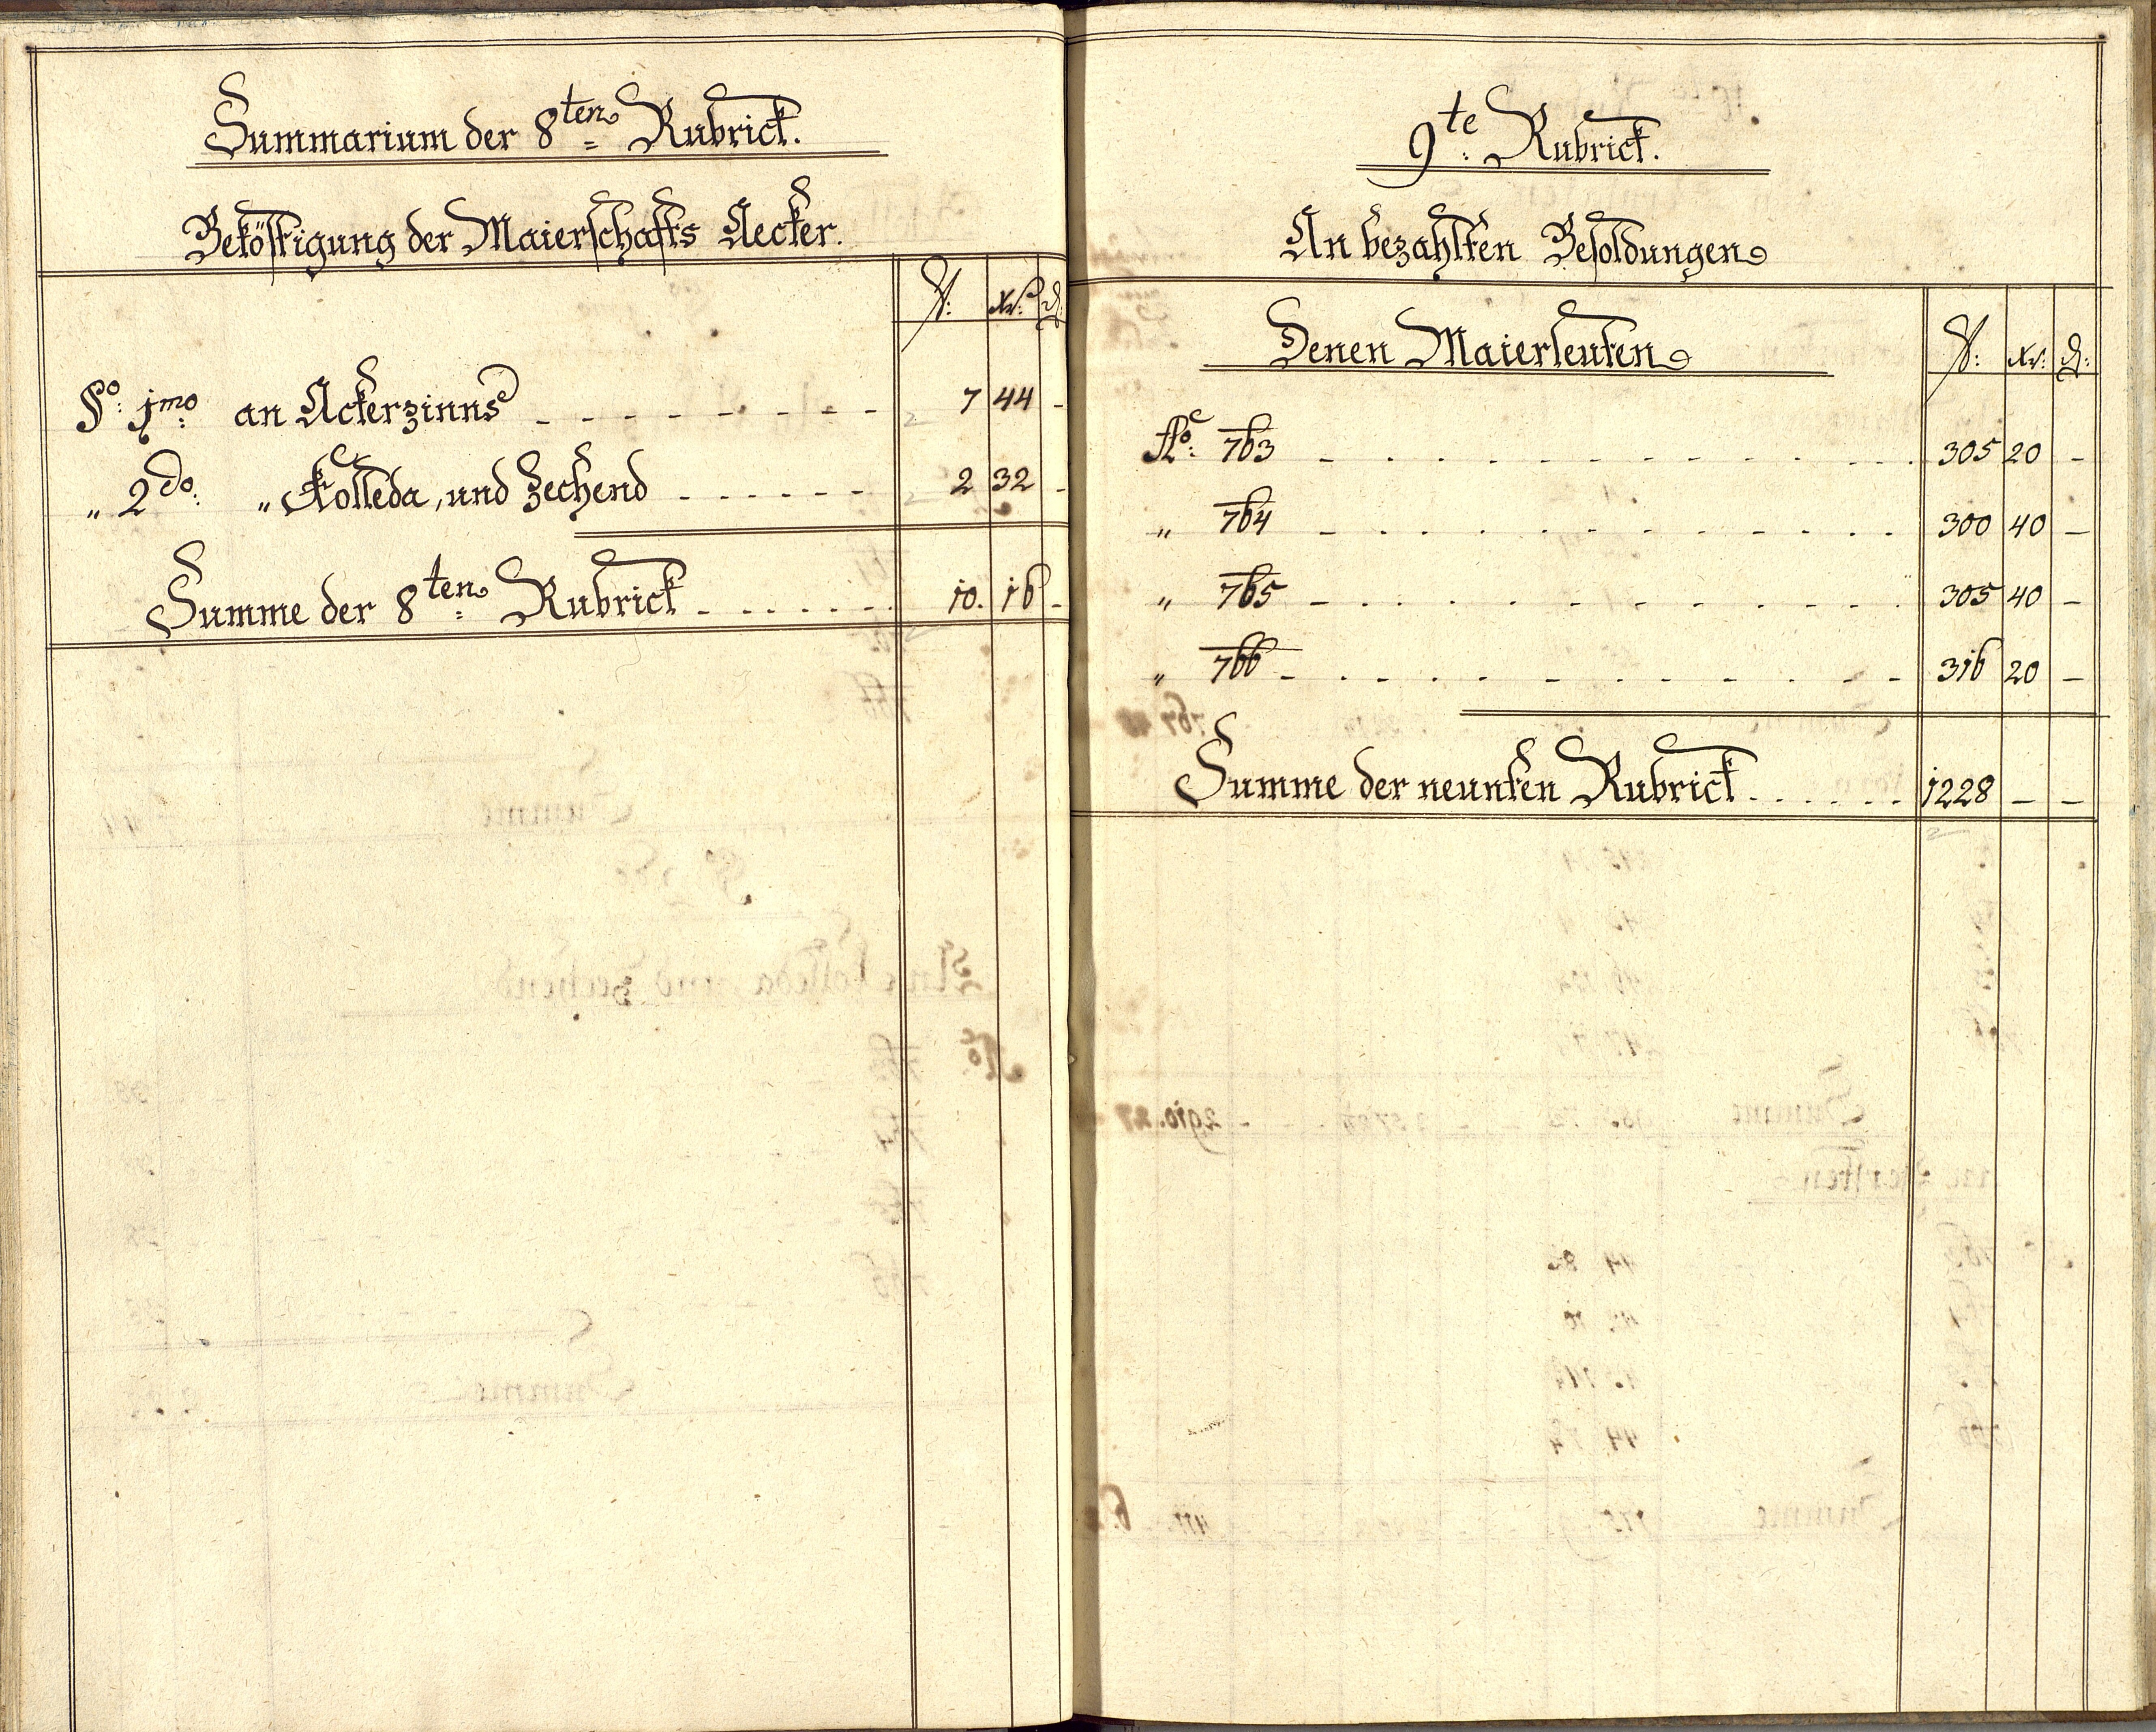 Summarium der 8ten Rubrick.
Beköstigung der Maierschafts Aecker.
f: xr: d:
§o: 1mo: an Ackerzinns - - - - - - - - 7 44 -
„ 2do: „ Kolleda, und Zechend - - - - - - 2 32 -
Summe der 8ten Rubrick - - - - - - - 10. 16 -
9te: Rubrick.
An bezahlten Besoldungen
Denen Maierleuten
f: xr: d:
Ao: 763 - - - - - - - - - - - 305 20 -
„ 764 - - - - - - - - - - - 300 40 -
„ 765 - - - - - - - - - - - 305 40 -
„ 766 - - - - - - - - - - - 316 20 -
Summe der neunten Rubrick . . . . . . 1228 - -